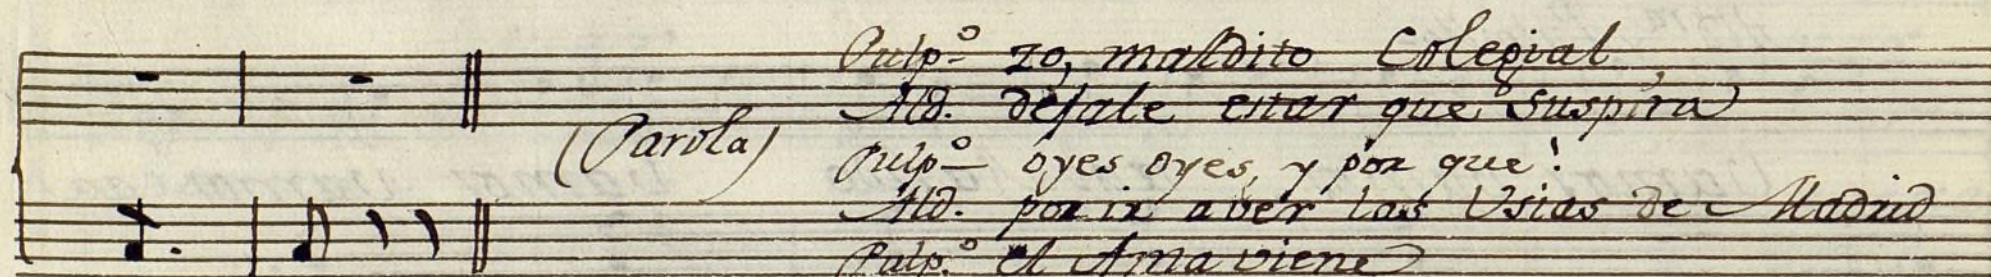 Pulp.º zo, maldito Colegial,
Ald. dejale estar que suspira
(Parola)
Pulp.º oyes oyes, y por que!
Ald. por ir aver las Usias de Madrid
Pulp.º el Ama viene